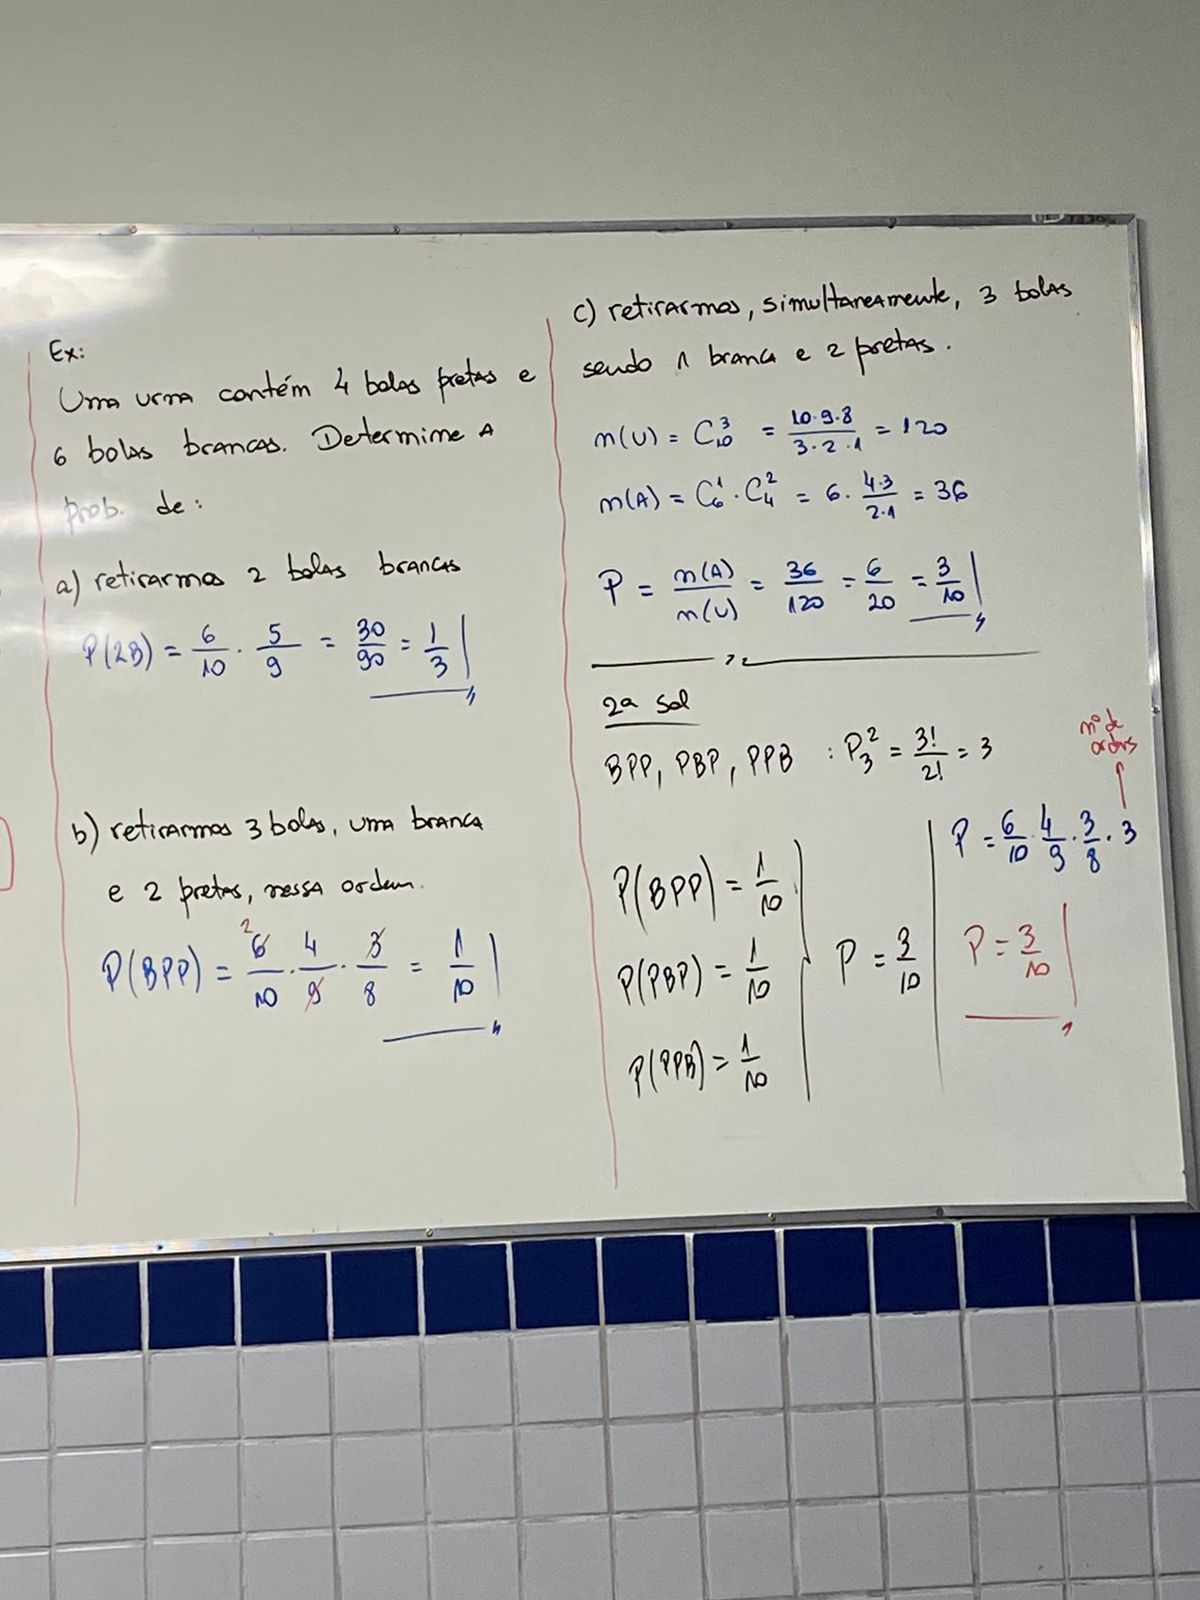 Ex:
Uma urna contém 4 bolas pretas e
6 bolas brancas. Determine a
prob. de:
a) retirarmos 2 bolas brancas
P(2B) = 6/10 · 5/9 = 30/90 = 1/3
b) retirarmos 3 bolas, uma branca
e 2 pretas, nessa ordem.
P(BPP) = 6/10 · 4/9 · 3/8 = 1/10
2
c) retirarmos, simultaneamente, 3 bolas
sendo 1 branca e 2 pretas.
n(U) = C₁₀³ = 10·9·8/3·2·1 = 120
n(A) = C₆¹ · C₄² = 6 · 4·3/2·1 = 36
P = n(A)/n(U) = 36/120 = 6/20 = 3/10
2ª sol
BPP, PBP, PPB : P₃² = 3!/2! = 3
P(BPP) = 1/10
P(PBP) = 1/10
P(PPB) = 1/10
P = 3/10
nº de
ordens
P = 6/10 · 4/9 · 3/8 · 3
P = 3/10